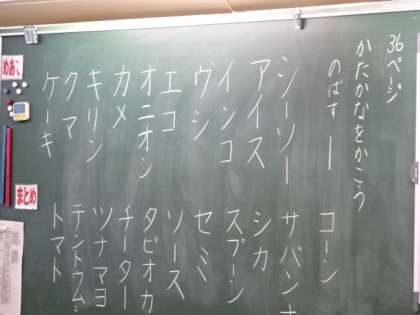 36ページ
かたかなをかこう
のばす ー
シーソー
アイス
インコ
ウシ
エコ
オニオン
カメ
キリン
クマ
ケーキ
コーン
サバンナ
シカ
スプーン
セミ
ソース
タピオカ
チーター
ツナマヨ
テントウムシ
トマト
めあて
まとめ